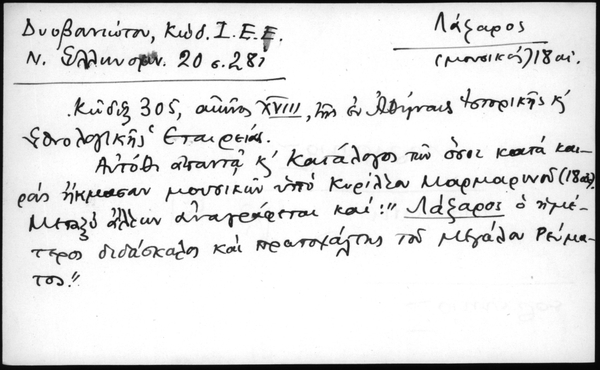 Δυοβανιώτου, Κώδ. Ι.Ε.Ε.
Ν. Ἑλληνομν. 20 σ. 281
Λάζαρος
(μουσικός) 18 αἰ.
Κώδιξ 305, αἰῶνος XVIII, τῆς ἐν Ἀθήναις Ἱστορικῆς κ'
Ἐθνολογικῆς Ἑταιρείας.
Αὐτόθι ἀπαντᾷ κ' κατάλογος τῶν ὅσοι κατὰ και-
ροὺς ἤκμασαν μουσικῶν ὑπὸ Κυρίλλου Μαρμαρινοῦ (18 αἰ.)
Μεταξὺ ἄλλων ἀναγράφεται καὶ: "Λάζαρος ὁ ἡμέ-
τερος διδάσκαλος καὶ πρωτοψάλτης τοῦ Μεγάλου Ρεύμα-
τος."